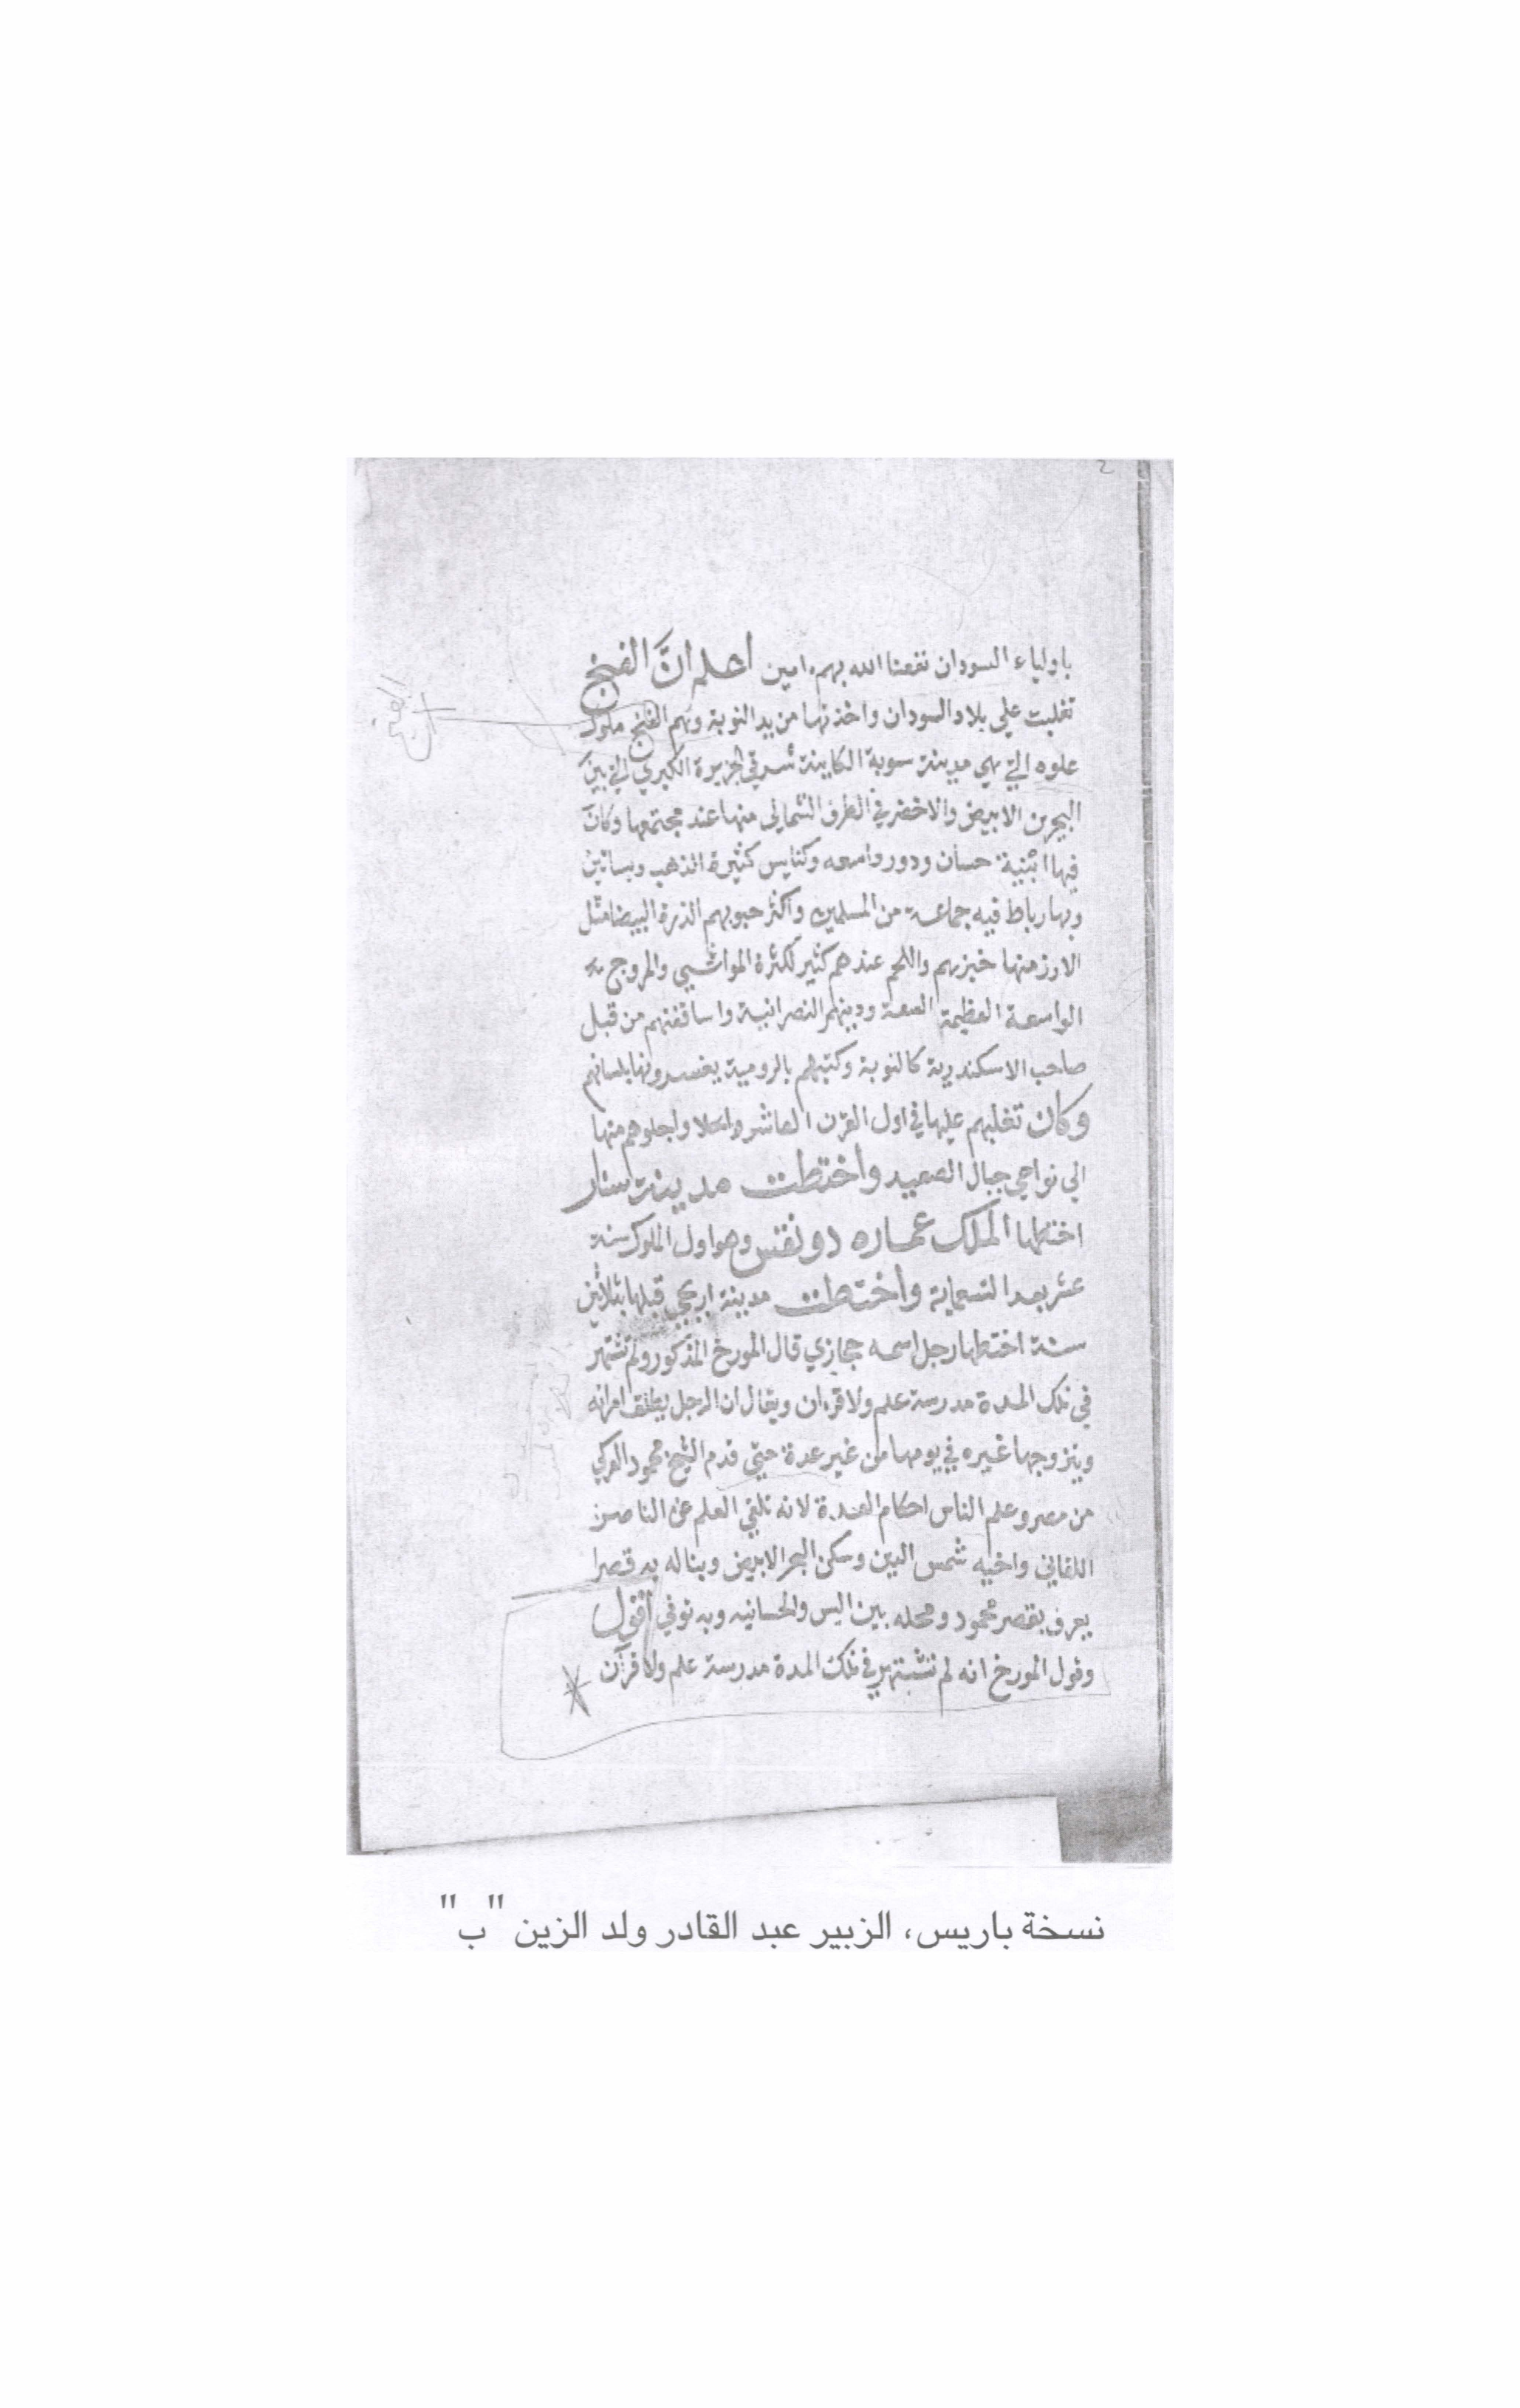 2
باولياء السودان نفعنا الله بهم امين اعلم انَّ الفنج
تغلبت علي بلاد السودان واخذتها من يد النوبة وبهم الفنج ملوك
علوه التي هي مدينة سوبة الكاينة شرقي الجزيرة الكبري التي بين
البحرين الابيض والاخضر في الطرف الشمالي منها عند مجتمعها وكان
فيها ابنية حسان ودور واسعه وكنايس كثيرة الذهب وبساتين
وبها رباط فيه جماعة من المسلمين واكثر حبوبهم الذرة البيضا مثل
الارز منها خبزهم واللحم عندهم كثير لكثرة المواشي والمروج
الواسعة العظيمة السعة ودينهم النصرانية واساقفتهم من قبل
صاحب الاسكندرية كالنوبة وكتبهم بالرومية يفسرونها بلسانهم
وكان تغلبهم عليها في اول القرن العاشر واجلوهم منها
الي نواحي جبال الصعيد واختطت مدينة سنار
اختطها الملك عماره دونقس وهو اول الملوك سنة
عشر بعد التسعماية واختطت مدينة اربجي قبلها بثلاثين
سنة اختطها رجل اسمه حجازي قال المورخ المذكور ولم تشتهر
في تلك المدة مدرسة علم ولا قرءان ويقال ان الرجل يطلق امراته
ويتزوجها غيره في يومها من غير عدة حتي قدم الشيخ محمود العركي
من مصر وعلم الناس احكام العدة لانه تلقي العلم عن الناصر
اللقاني واخيه شمس الدين وسكن البحر الابيض وبنا له به قصرا
يعرف بقصر محمود ومحله بين اليس والحسانيه وبه توفي اقول
وقول المورخ انه لم تشتهر في تلك المدة مدرسة علم ولا قرآن
الفنج
نسخة باريس، الزبير عبد القادر ولد الزين "ب"